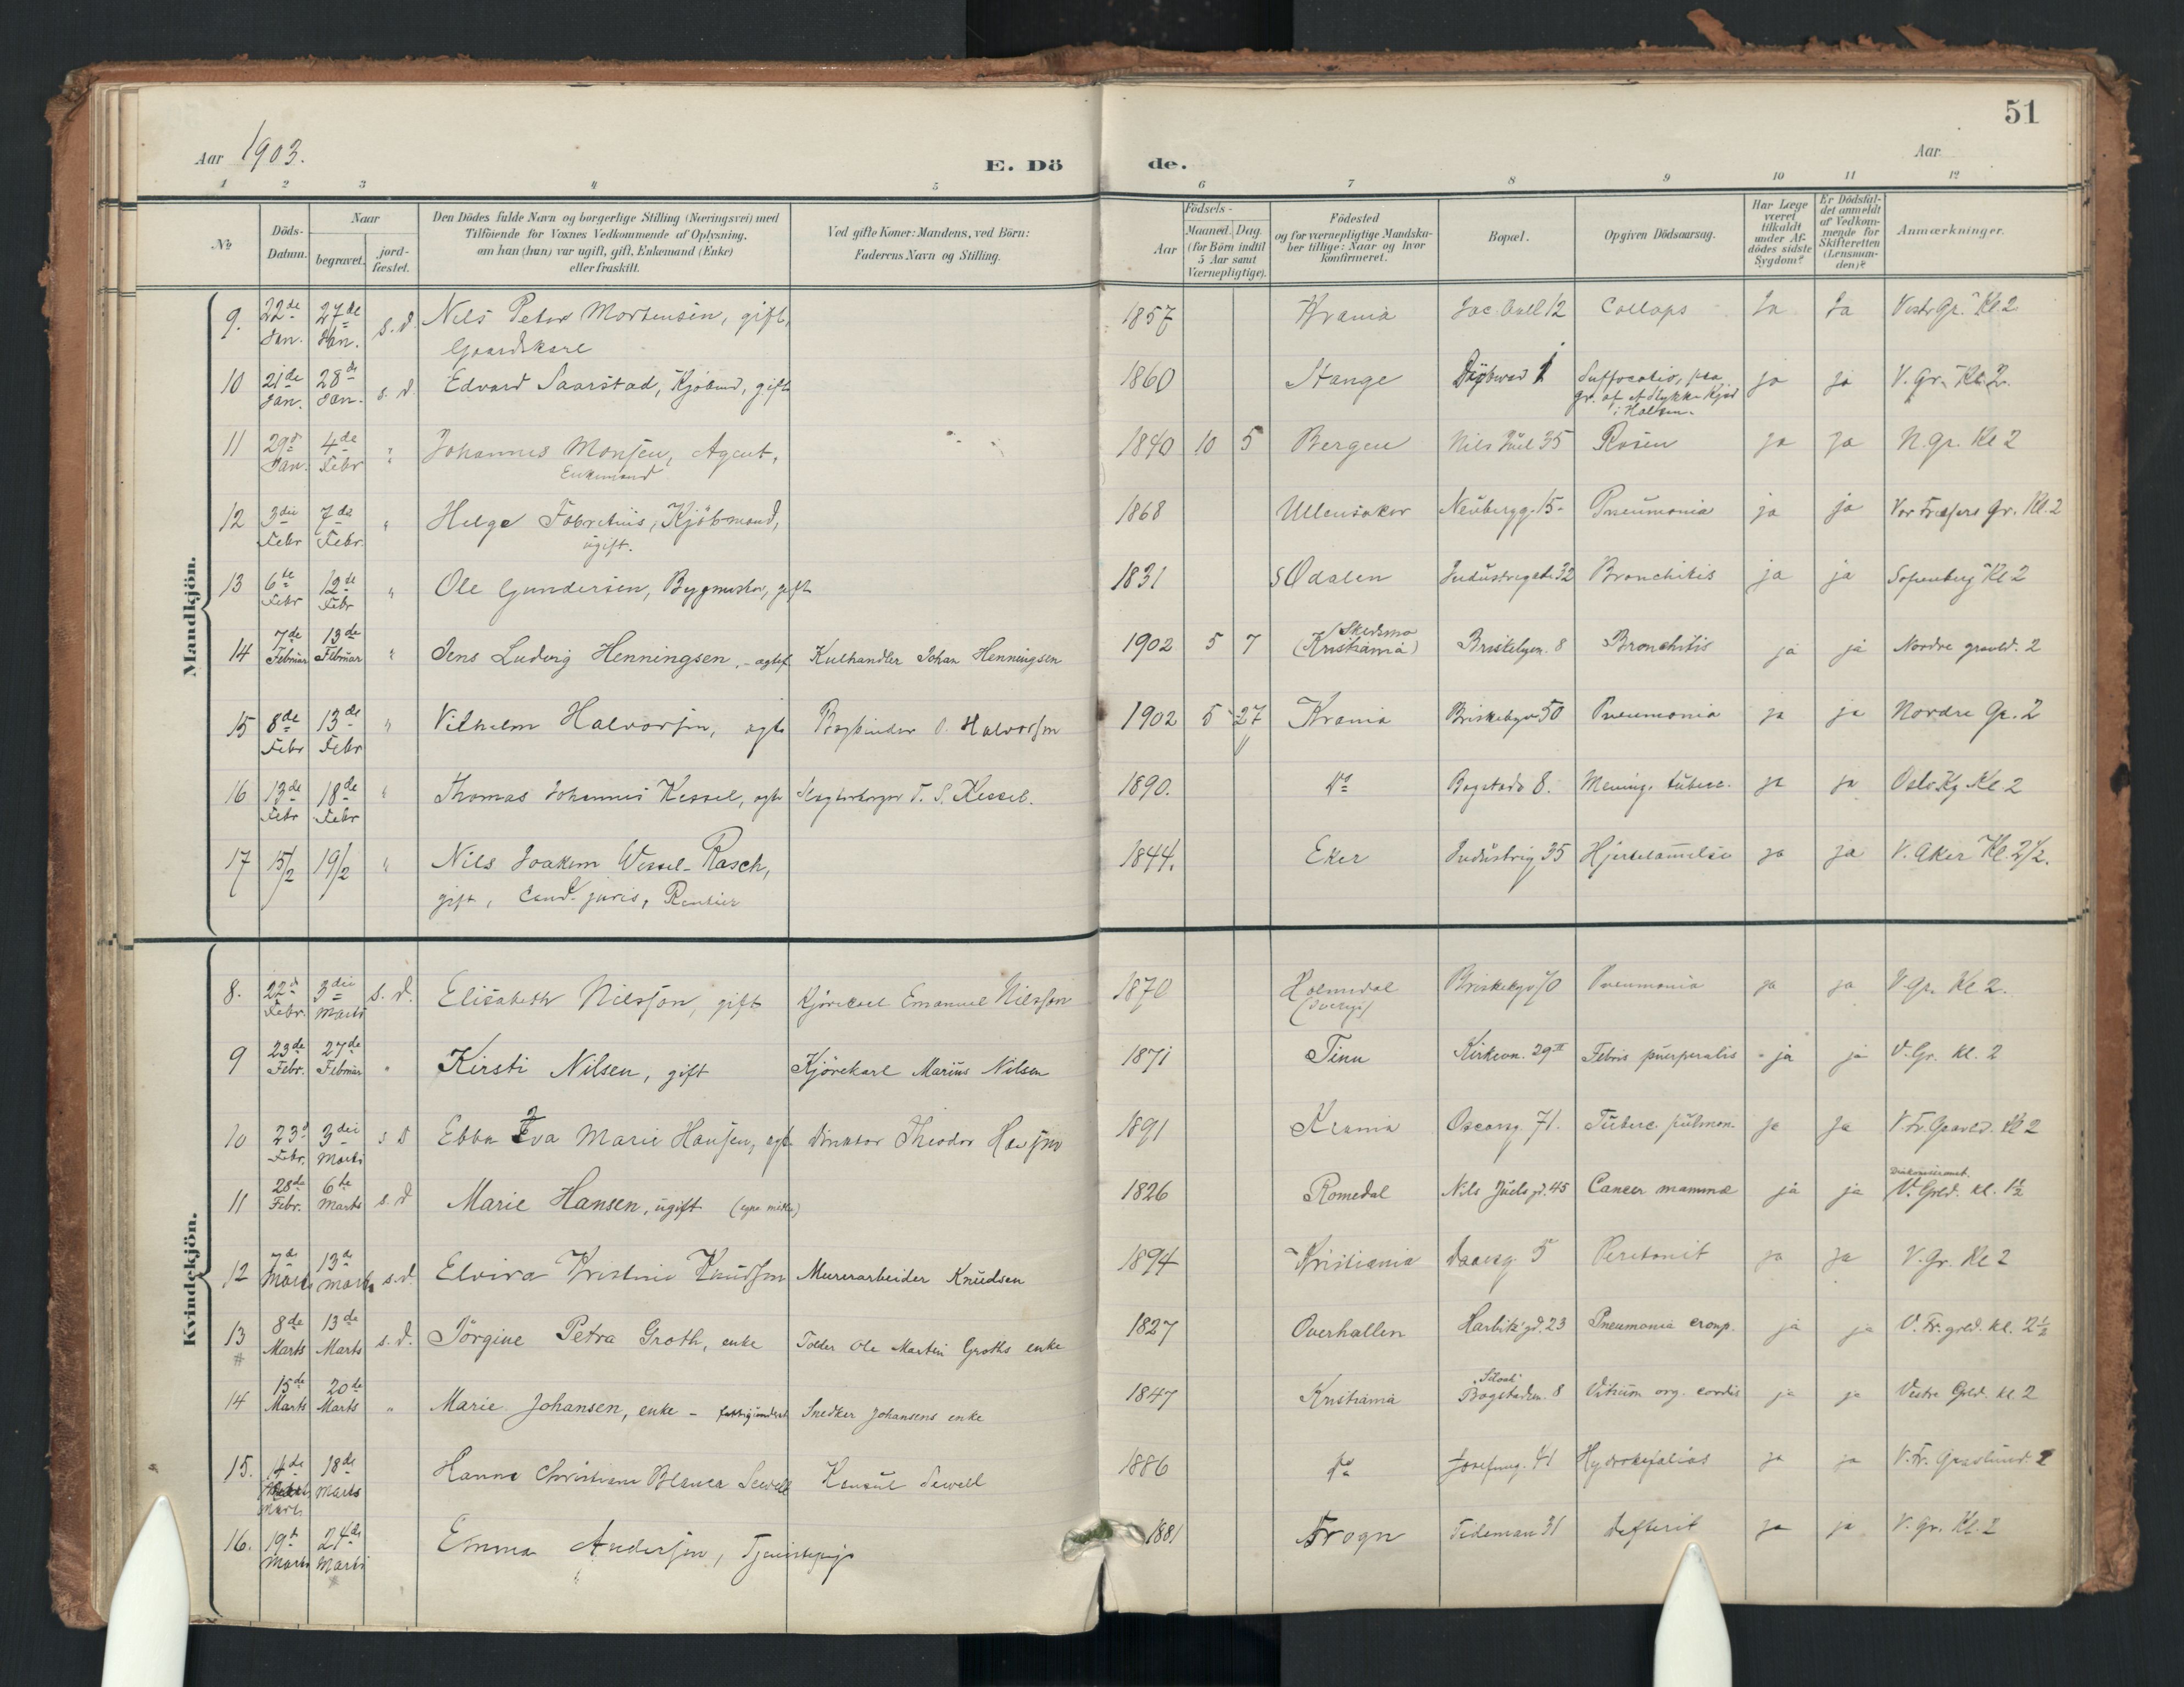 51
Aar 1903.
E. Dö de.
Aar
1 2 3 4 5 6 7 8 9 10 11 12
№
Döds-Datum.
Naar
begravet.
jord-fæstet.
Den Dödes fulde Navn og borgerlige Stilling (Næringsvei) med
Tilföiende for Voxnes Vedkommende af Oplysning.
om han (hun) var ugift, gift, Enkemand (Enke)
eller fraskilt.
Ved gifte Koner: Mandens, ved Börn:
Faderens Navn og Stilling.
Födsels-
Aar
Maaned. Dag.
(for Börn indtil
5 Aar samt
Værnepligtige).
Födested
og for værnepligtige Mandska-
ber tillige: Naar og hvor
konfirmeret.
Bopæl.
Opgiven Dödsaarsag.
Har Læge
været
tilkaldt
under Af-
dödes sidste
Sygdom?
Er Dödsfal-
det anmeldt
af Vedkom-
mende for
Skifteretten
(Lensman-
den)?
Anmærkninger.
Mandkjön.
9. 22de Jan. 27de Jan. s. d. Nils Peter Mortensen, gift, Gaardskarl 1857 Krania Jac. Aall 12 Collaps Ja Ja Vestr Gr. Kl 2
10 21de Jan. 28de Jan. s. d. Edvard Saarstad, Kjöbmd, gift 1860 Stange Suffocatio, paa gr. af et Stykke Kjöd i Halsen. ja ja V. Gr. Kl. 2.
11 29d Jan. 4de Febr " Johannes Monsen, Agent, Enkemand 1840 10 5 Bergen Nils Juel 35 Rosen ja ja N. Gr. Kl 2
12 3die Febr 7de Febr. " Helge Fabretius, Kjöbmand, ugift. 1868 Ullensaker Neuberg. 15 Pneumonia ja ja Vor Frelsers Gr. Kl. 2
13 6te Febr 12de Febr " Ole Gundersen, Bygmester, gift 1831 S Odalen Industrigade 32 Bronchitis ja ja Sofienberg Kl 2
14 7de Februar 13de Februar " Jens Ludvig Henningsen, - ægtef. Kulhandler Johan Henningsen 1902 5 7 (Skedsmo (Kristiania) Briskebyn. 8 Bronchitis ja ja Nordre gravld. 2
15 8de Febr 13de Febr " Vilhelm Halvorsen, ægte Bogbinder O. Halvorsen 1902 5 27 Krania Briskebyv 50 Pneumonia ja ja Nordre Gr. 2
16 13de Febr 18de Febr " Thomas Johannes Kessel, ægte T. S. Kessel. 1890. do Bogstadv 8. Mening. tuberc. ja ja Oslo Kg. Kl. 2
17 15/2 19/2 " Nils Joakim Wessel-Rasch, gift, Cand. juris, Rentier 1844. Eker Industrig 35 Hjertelammelse ja ja V. Aker Kl. 2 1/2.
Kvindekjön.
8. 22d Febr. 3die Marts s. d. Elisabeth Nilsson, gift Kjörekarl Emanuel Nilsson 1870 Holmedal (Sverige) Pneumonia ja ja V Gr. Kl 2.
9 23de Febr. 27de Februar " Kirsti Nilsen, gift Kjörekarl Marius Nilsen 1871 Tinn Kirkevn. 29 II Febris puerperalis ja ja V. Gr. kl. 2
10 23d Febr. 3die Marts s d Ebba Eva Marie Hansen, ægte Direktör Theodor Hansen 1891 Krania Oscarsg. 71. Tuberc. pulmon. ja ja V. Fr. Gravld. Kl 2
11 28de Febr. 6te Marts s. d Marie Hansen, ugift (egne midler) 1826 Romedal Nils Juels gd. 45 Cancer mammæ ja ja V. Gvld. kl. 1½
12 7de Marts 13de Marts s. d. Elvira Kristine Knudsen Murerarbeider Knudsen 1894 Kristiania Daasg. 5 Peritonit ja ja V. Gr. Kl 2
13 8de Marts 13de Marts s. d. Jörgine Petra Groth, enke Tolder Ole Martin Groths enke 1827 Overhallen Harbitz' gd. 23 Pneumonia croup. ja ja V. Fr. grld. kl. 2½
14 15de Marts 20de Marts " Marie Johansen, enke - fattigunderst. Snedker Johansens enke 1847 Kristiania "Siloah" Bogstadvn. 8 Vitium org. cordis ja ja Vestre Gvld. kl. 2
15. 14de Marts 18de Marts Hanna Christiane Blanca Sewell Konsul Sewell 1886 do Josefinsg. 41 Hydrokefalus ja ja V. Fr. Gravlund. 2
16. 19d Marts 24de Marts Emma Andersen, Tjenestepige 1881 Frogn Tideman 31 Defterit ja ja V. Gr. Kl. 2